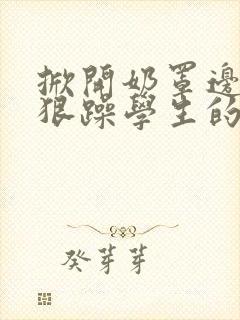 掀開奶罩邊
狠躁學生的
癸芽芽